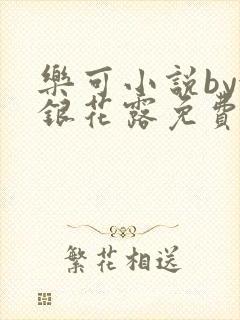 樂可小說by
銀花露免費
繁花相送